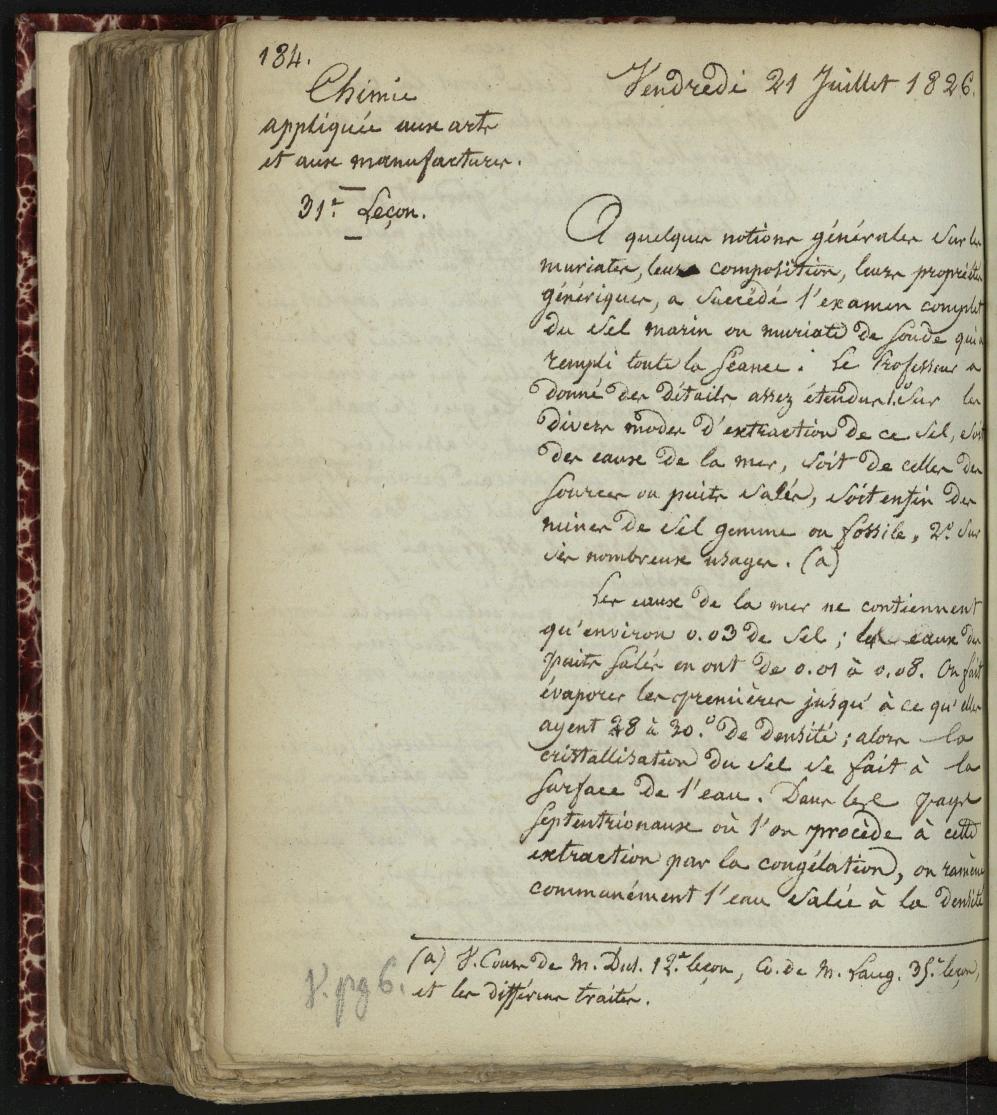 184.
Chimie
appliquée aux arts
et aux manufactures.
31.e Leçon.
Vendredi 21 Juillet 1826.
A quelques notions générales sur les
muriates, leur composition, leurs propriétés
génériques, a succédé l'examen complet
du sel marin ou muriate de soude qui a
rempli toute la séance. Le Professeur a
donné des détails assez étendus 1.° sur les
divers modes d'extraction de ce sel, soit
des eaux de la mer, soit de celles des
sources ou puits salés, soit enfin des
mines de sel gemme ou fossile, 2.° sur
ses nombreux usages. (a)
Les eaux de la mer ne contiennent
qu'environ 0.03 de sel; les eaux des
puits salés en ont de 0.01 à 0.08. On fait
évaporer les premières jusqu'à ce qu'elles
ayent 28 à 30.° de densité; alors la
cristallisation du sel se fait à la
surface de l'eau. Dans les pays
septentrionaux où l'on procède à cette
extraction par la congélation, on ramène
communément l'eau salée à la densité
(a) V. Cours de M. Dul. 12.e leçon, Co. de M. Laug. 35.e leçon,
et les différens traités.
V. pg 6.